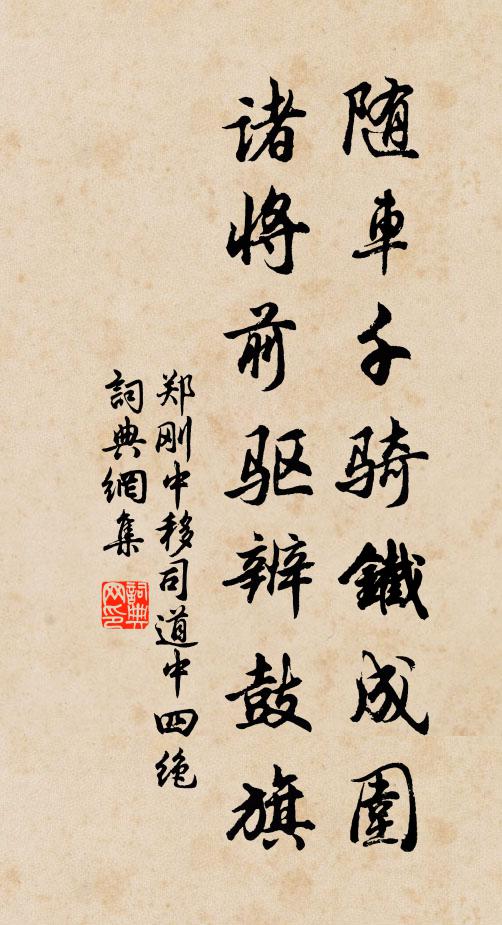 随車千騎鐵成圍
诸将前驱辨鼓旗
郑刚中移司道中四绝
詞典網集
詞典
网印